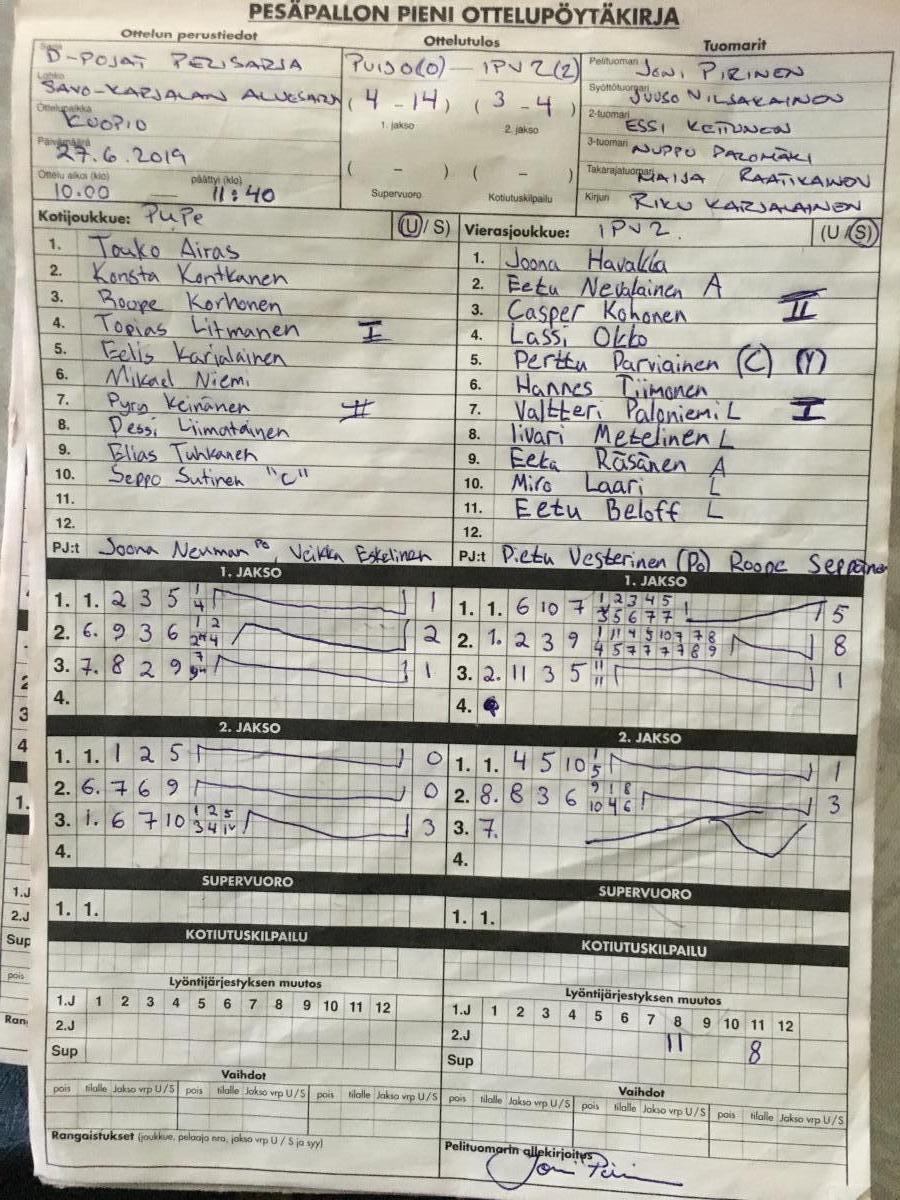 PESÄPALLON PIENI OTTELUPÖYTÄKIRJA
Ottelun perustiedot
Ottelutulos
Tuomarit
Sarja D-POJAT PERUSARJA
PUIJO(0) — IPV 2(2)
Pelituomari JONI PIRINEN
Lohko SAVO-KARJALAN ALUESARJA
( 4 - 14 ) ( 3 - 4 )
Syöttötuomari JUUSO NILSAKAINEN
1. jakso 2. jakso
Ottelupaikka KUOPIO
2-tuomari ESSI KETTUNEN
Päivämäärä 27.6.2019
3-tuomari NUPPU PALOMÄKI
( - ) ( - )
Takarajatuomari MAIJA RAATIKAINEN
Ottelu alkoi (klo) 10.00 — päättyi (klo) 11:40
Supervuoro Kotiutuskilpailu
Kirjuri RIKU KARJALAINEN
Kotijoukkue: PuPe (U / S)
1. Touko Airas
2. Konsta Kontkanen
3. Roope Korhonen
4. Topias Litmanen I
5. Eelis Karjalainen
6. Mikael Niemi
7. Pyry Keinänen II
8. Pessi Liimatainen
9. Elias Tuhkanen
10. Seppo Sutinen "C"
11.
12.
PJ:t Joona Neuman PO, Veikka Eskelinen
Vierasjoukkue: IPV 2. (U / S)
1. Joona Havakka
2. Eetu Nevalainen A
3. Casper Kohonen II
4. Lassi Okko
5. Perttu Parviainen (C) (Y)
6. Hannes Tiimonen
7. Valtteri Paloniemi L I
8. Iivari Metelinen L
9. Eeka Räsänen A
10. Miro Laari L
11. Eetu Beloff L
12.
PJ:t Pietu Vesterinen (Po) Roope Seppänen
1. JAKSO
1. 1. 2 3 5 1 4 1
2. 6. 9 3 6 1 2 2 4 2
3. 7. 8 2 9 7 1
4.
2. JAKSO
1. 1. 1 2 5 0
2. 6. 7 6 9 0
3. 1. 6 7 10 1 2 5 3 4 3
4.
SUPERVUORO
1. 1.
KOTIUTUSKILPAILU
Lyöntijärjestyksen muutos
1.J 1 2 3 4 5 6 7 8 9 10 11 12
2.J
Sup
Vaihdot
pois tilalle Jakso vrp U / S pois tilalle Jakso vrp U / S pois tilalle Jakso vrp U / S
Rangaistukset (joukkue, pelaaja nro, jakso vrp U / S ja syy)
1. JAKSO
1. 1. 6 10 7 1 2 3 4 5 3 5 6 7 7 5
2. 1. 2 3 9 1 11 4 5 10 7 7 8 4 5 7 7 7 7 8 9 8
3. 2. 11 3 5 11 11 1
4.
2. JAKSO
1. 1. 4 5 10 1 5 1
2. 8. 8 3 6 9 1 8 10 4 6 3
3. 7.
4.
SUPERVUORO
1. 1.
KOTIUTUSKILPAILU
Lyöntijärjestyksen muutos
1.J 1 2 3 4 5 6 7 8 9 10 11 12
2.J 11 8
Sup
Vaihdot
pois tilalle Jakso vrp U / S pois tilalle Jakso vrp U / S pois tilalle Jakso vrp U / S
Pelituomarin allekirjoitus